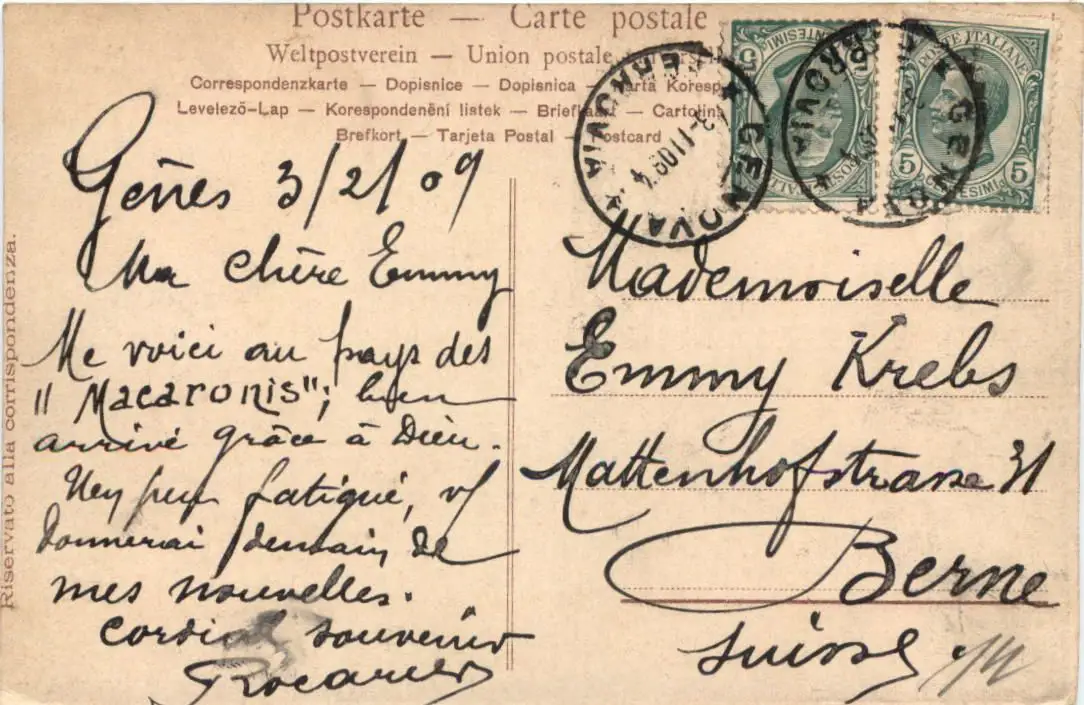 Postkarte — Carte postale
Weltpostverein — Union postale
Correspondenzkarte — Dopisnice — Dopisnica — Carta Koresp
Levelező-Lap — Korespondenění listek — Briefkaart — Cartolina
Brefkort — Tarjeta Postal — Postcard
Riservato alla corrispondenza.
POSTE ITALIANE
5 CENTESIMI 5
POSTE ITALIANE
5 CENTESIMI 5
GENOVA
FERROVIA
GENOVA
FERROVIA
Gênes 3/2/09
Ma chère Emmy
Me voici au pays des
"Macaronis"; bien
arrivé grâce à Dieu.
peu fatigué,
donnerai demain de
mes nouvelles.
Cordial souvenir
Mademoiselle
Emmy Krebs
Mattenhofstrasse 31
Berne
Suisse